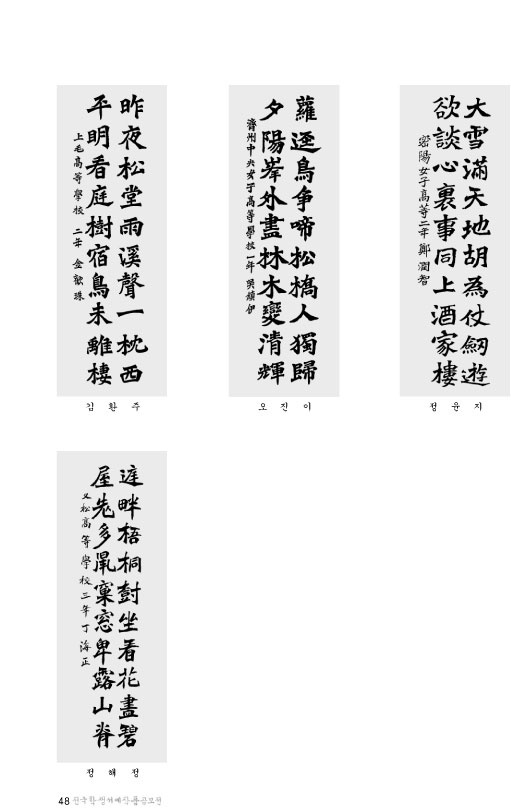 昨夜松堂雨溪聲一枕西
平明看庭樹宿鳥未離棲
上毛高等學校 二年 金歡珠
김환주
蘿逕鳥争啼松橋人獨歸
夕陽峯外盡林木變清輝
濟州中央女子高等學校一年 吳
오진이
大雪滿天地胡為仗劒遊
欲談心裏事同上酒家樓
密陽女子高等二年 鄭潤智
정윤지
畔梧桐尌坐看花盡碧
屋多窠窓卑露山脊
又松高等學校三年丁海正
정해정
48